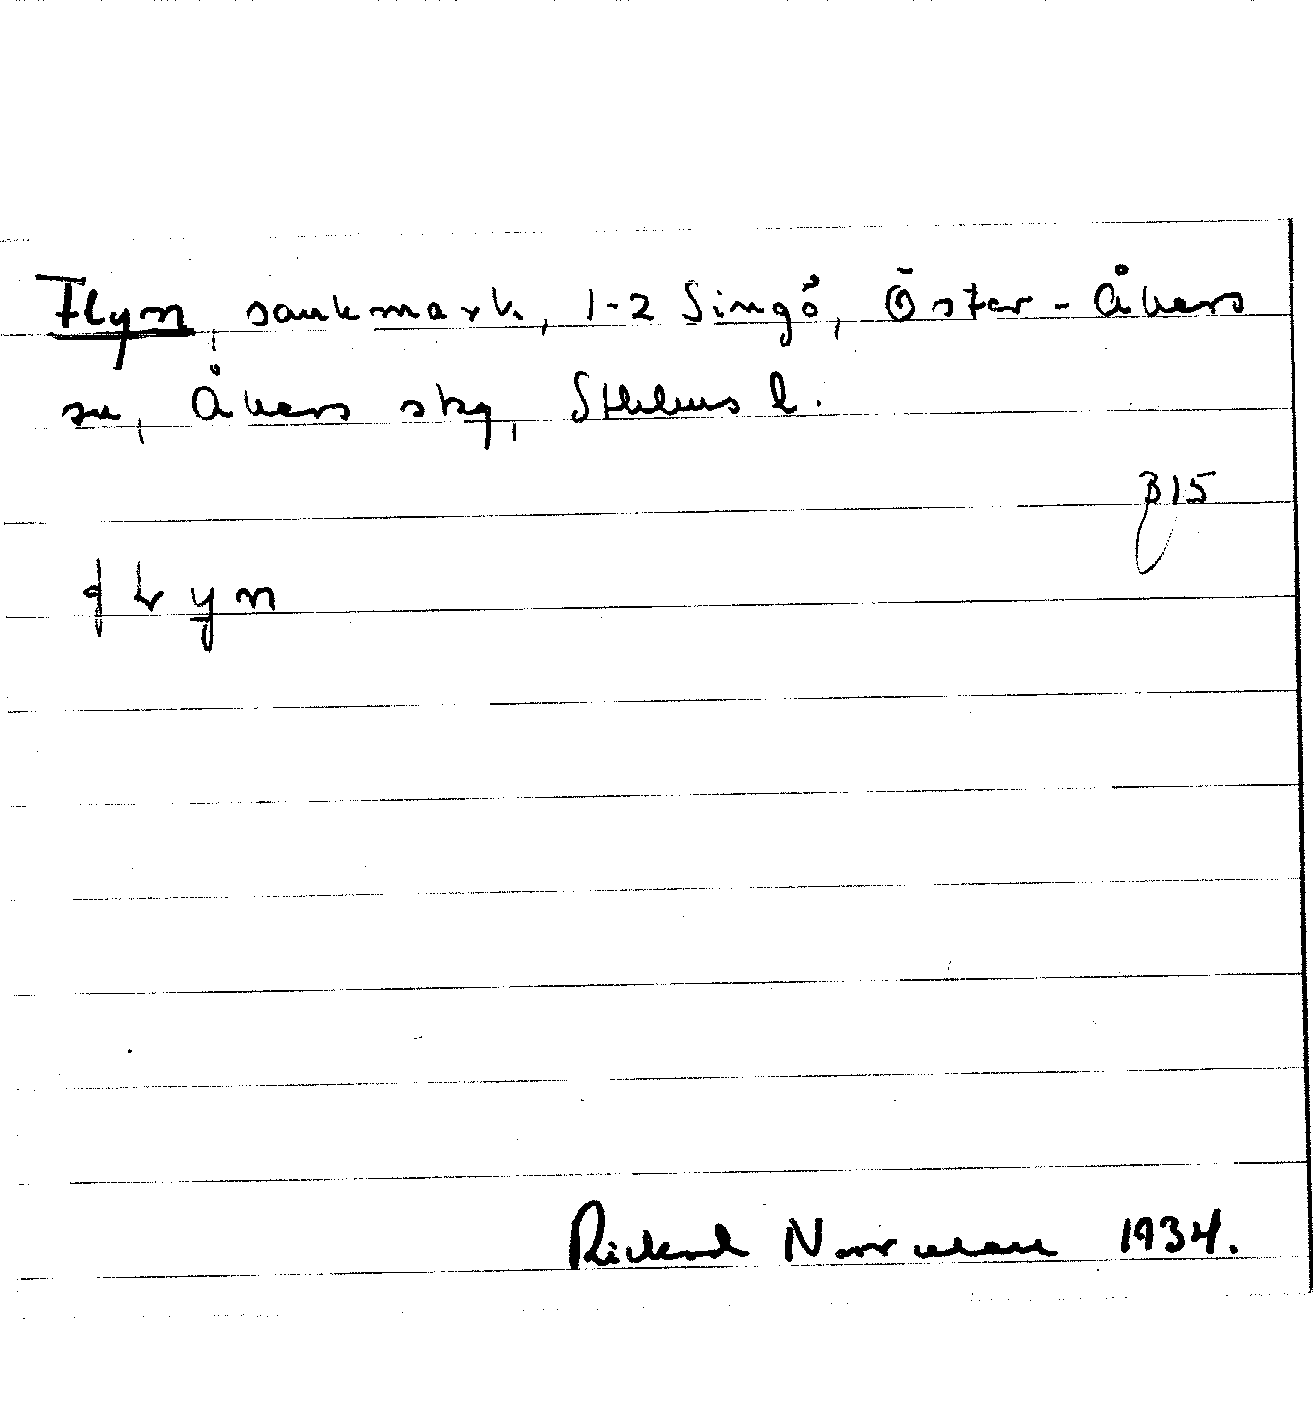 Flyn, sankmark, 1-2 Singö, Öster-Åkers
sn, Åkers skg, Sthlms l.
B15
Rickard Norrman 1934.